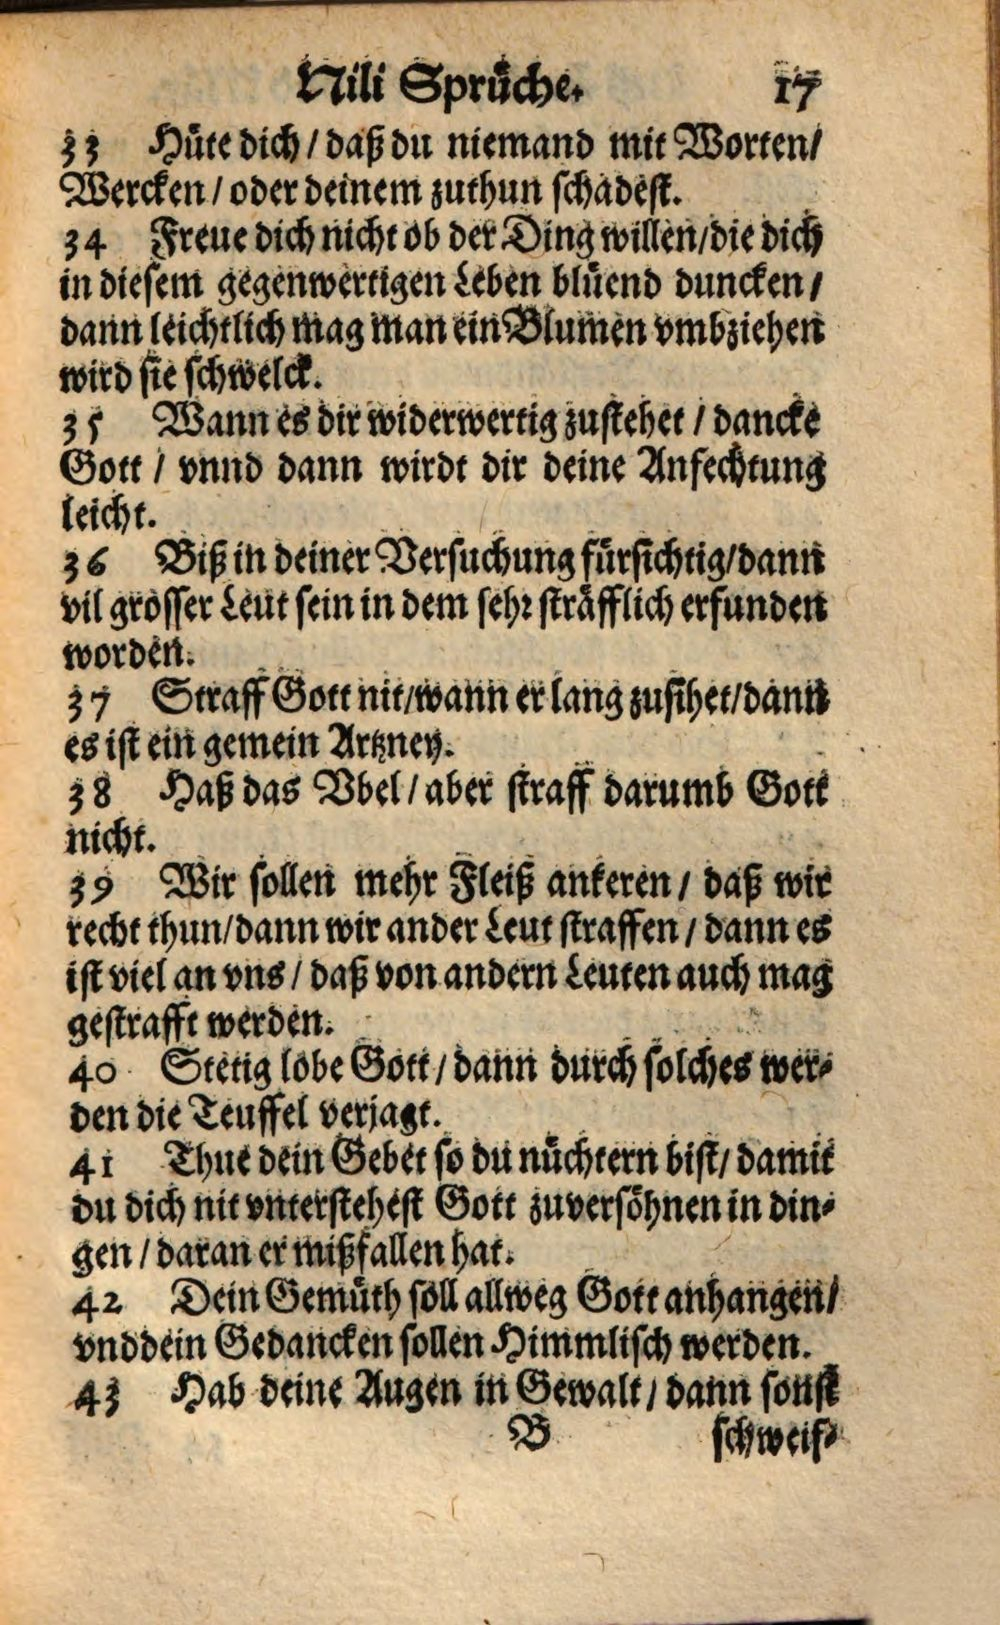 Nili Sprüche. 17
33 Hüte dich / daß du niemand mit Worten /
Wercken / oder deinem zuthun schadest.
34 Freue dich nicht ob der Ding willen / die dich
in diesem gegenwertigen Leben blüend duncken /
dann leichtlich mag man ein Blumen vmbziehen
wird sie schwelck.
35 Wann es dir widerwertig zustehet / dancke
Gott / vnnd dann wirdt dir deine Anfechtung
leicht.
36 Biß in deiner Versuchung fürsichtig / dann
vil grosser Leut sein in dem sehr sträfflich erfunden
worden.
37 Straff Gott nit / wann er lang zusihet / dann
es ist ein gemein Artzney.
38 Haß das Vbel / aber straff darumb Gott
nicht.
39 Wir sollen mehr Fleiß ankeren / daß wir
recht thun / dann wir ander Leut straffen / dann es
ist viel an vns / daß von andern Leuten auch mag
gestrafft werden.
40 Stetig lobe Gott / dann durch solches wer-
den die Teuffel verjagt.
41 Thue dein Gebet so du nüchtern bist / damit
du dich nit vnterstehest Gott zuversöhnen in din-
gen / daran er mißfallen hat.
42 Dein Gemüth soll allweg Gott anhangen /
vnd dein Gedancken sollen Himmlisch werden.
43 Hab deine Augen in Gewalt / dann sonst
B schweif-